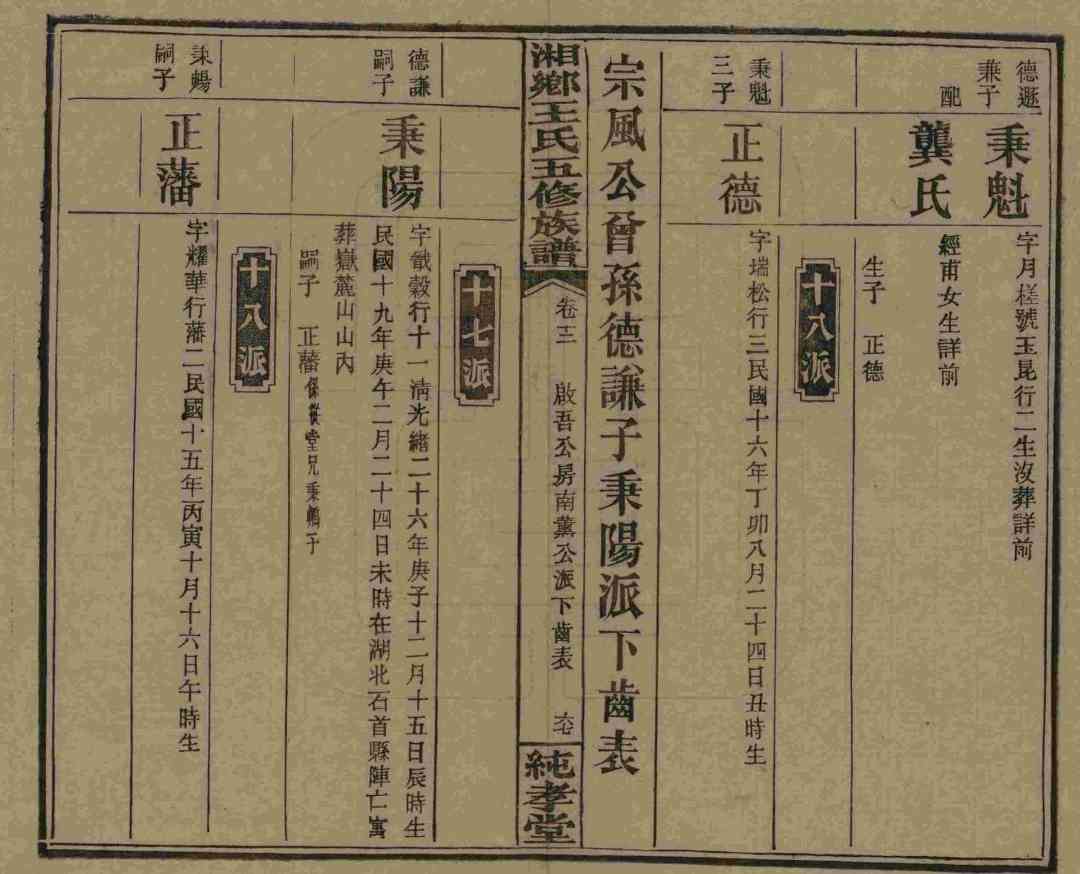 德遜
兼子
秉魁
字月槎號玉昆行二生沒葬詳前
配
龔氏
經甫女生詳前
生子 正德
十八派
秉魁
三子
正德
字瑞松行三民國十六年丁卯八月二十四日丑時生
宗風公曾孫德謙子秉陽派下齒表
湘鄉王氏五修族譜
卷三 啟吾公房南薰公派下齒表
純孝堂
十七派
德謙
嗣子
秉陽
字戩穀行十一淸光緒二十六年庚子十二月十五日辰時生
民國十九年庚午二月二十四日未時在湖北石首縣陣亡寓
葬嶽麓山山內
嗣子 正藩係從堂兄秉 子
十八派
秉暘
嗣子
正藩
字耀華行藩二民國十五年丙寅十月十六日午時生